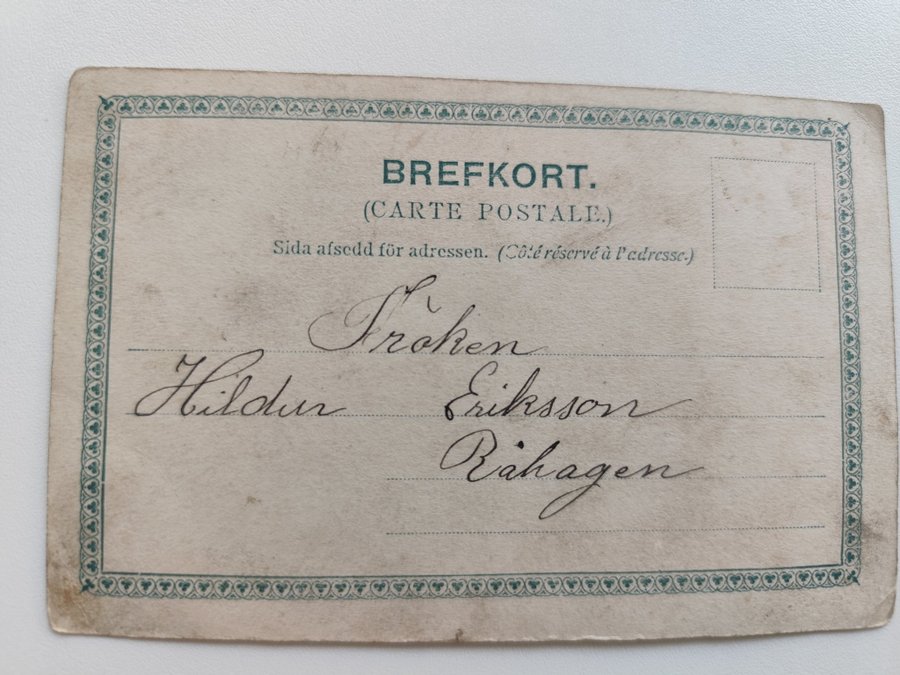 BREFKORT.
(CARTE POSTALE.)
Sida afsedd för adressen. (Côté réservé à l'adresse.)
Fröken
Hildur Eriksson
Råhagen